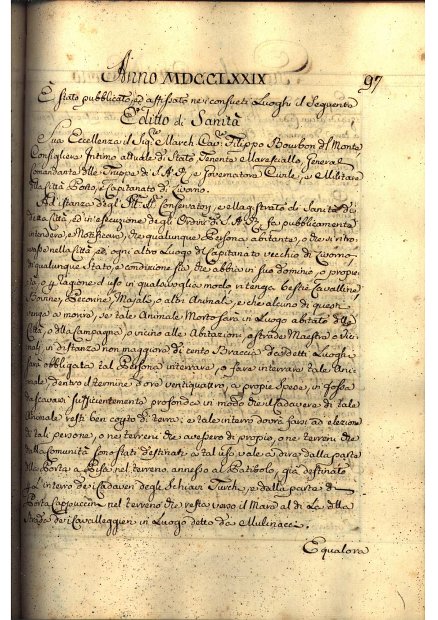 Anno MDCCLXXIX 97
È stato pubblicato, ed affissato nei consueti Luoghi il Seguente
Editto di Sanità
Sua Eccellenza il Sigre. March. Cavr. Filippo Bourbon del Monte
Consigliere Intimo attuale di Stato, Tenente Maresciallo, General
Comandante delle Truppe di S.A.R. e Governatore Civile, e Militare
della Città, Porto, e Capitanato di Livorno.
Ad istanza degl' Conservatori, e Magistrato di Sanità di
detta Città, ed in esecuzione degli Ordini di S.A.R. fa pubblicamente
intendere, e Notificare, che qualunque Persona abitante, o che si ritro-
vasse nella Città, ed ogni altro Luogo del Capitanato vecchio di Livorno,
di qualunque Stato, e condizione sia, che abbia in suo dominio, o proprie-
tà, o p ragione d'uso in qualsivoglia modo in tenga bestie Cavalline,
Bovine, Pecorine, Majali, o altri Animali, e che alcuno di questi
venga a morire, se tale Animale Morto sarà in Luogo abitato della
Città, o della Campagna, o vicino alle Abitazioni, o strade Maestre, o Vici-
nali in distanza non maggiore di cento Braccia da detti Luoghi
sarà obbligata tal Persona interrare, o fare interrare tale Ani-
male dentro il termine d'ore ventiquattro, a proprie Spese, in fossa
da scavarsi sufficientemente profonda in modo che il Cadavere di tale
Animale resti ben coperto di terra; e tale interro dovrà farsi ad elezione
di tali persone, o nei terreni che avessero di proprio, o nei terreni che
dalla Comunità sono stati destinati a tal uso, vale a dire dalla parte
della Porta a Pisa nel terreno annesso al Patibolo, già destinato
p L'interro dei Cadaveri degli Schiavi Turchi, e dalla parte di
Porta Cappuccini nel terreno che resta verso il Mare al di Là della
Strada dei Cavalleggieri in Luogo detto da Mulinacci.
E qualora